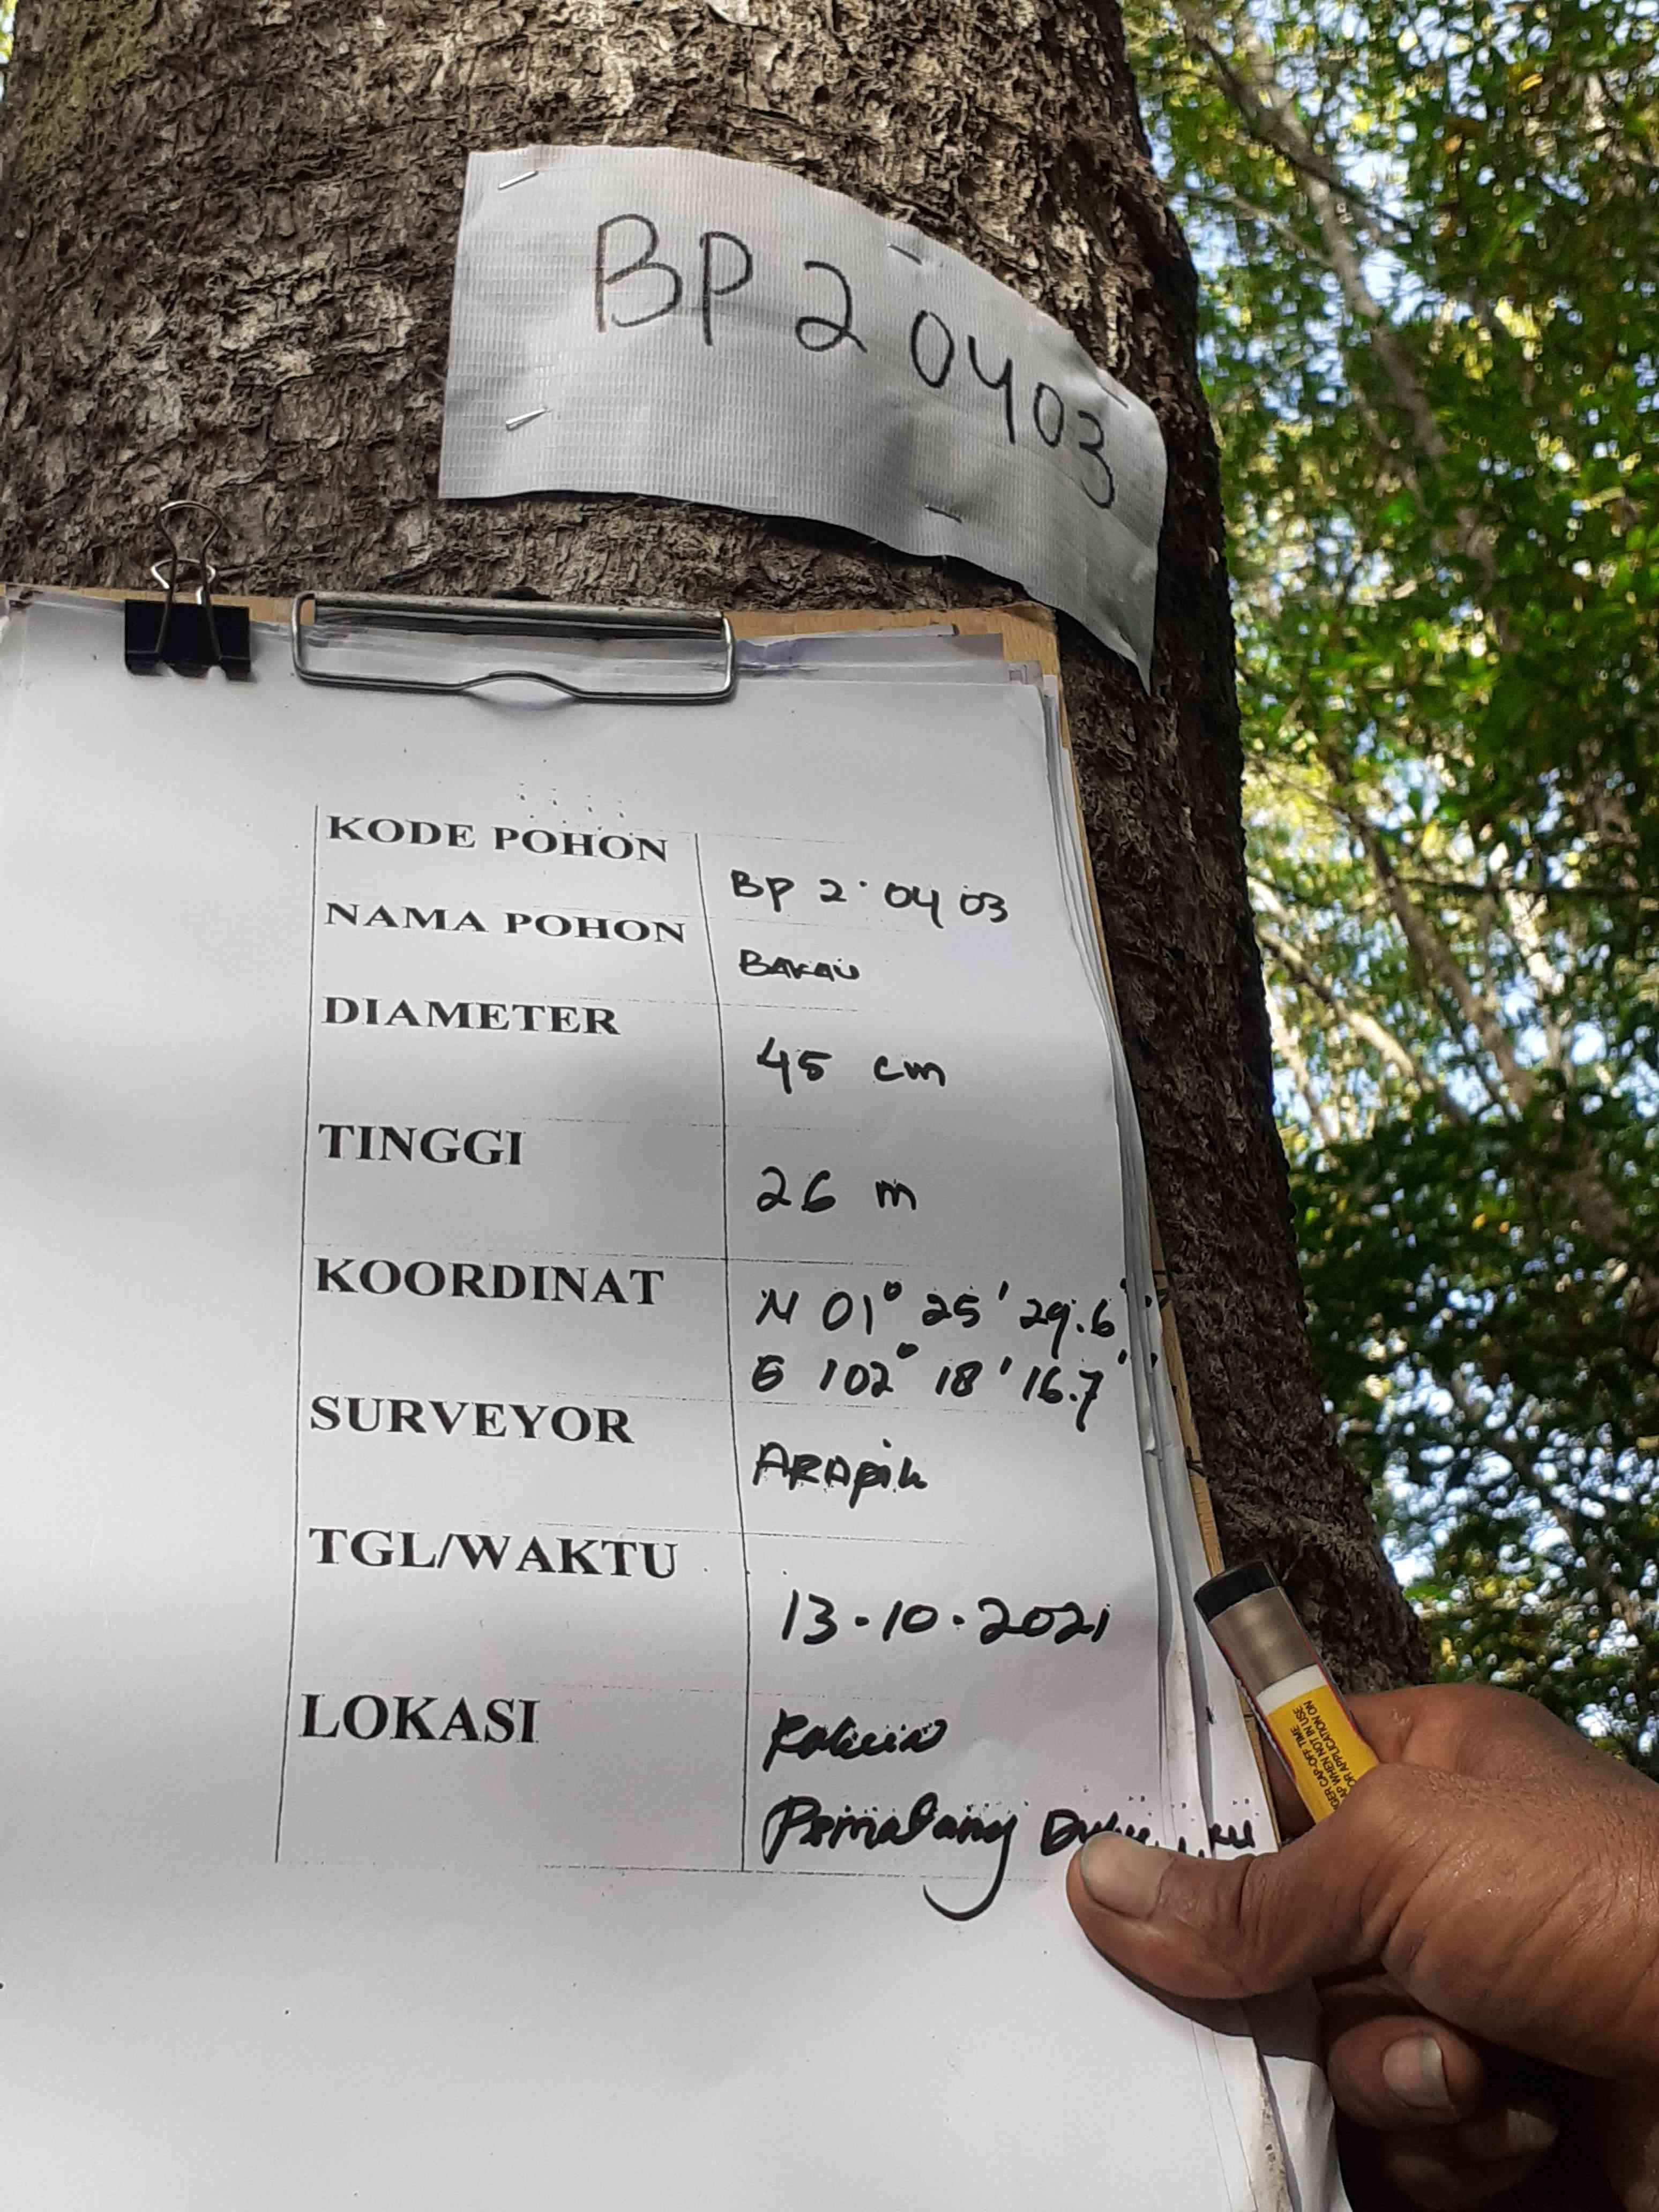 BP 2 0403
KODE POHON BP 2 04 03
NAMA POHON BAKAU
DIAMETER 45 cm
TINGGI 26 m
KOORDINAT N 01° 25' 29.6"
E 102° 18' 16.7"
SURVEYOR ARApik
TGL/WAKTU 13-10-2021
LOKASI
Pematang
CAP-OFF TIME
WHEN NOT IN USE
FOR APPLICATION ON